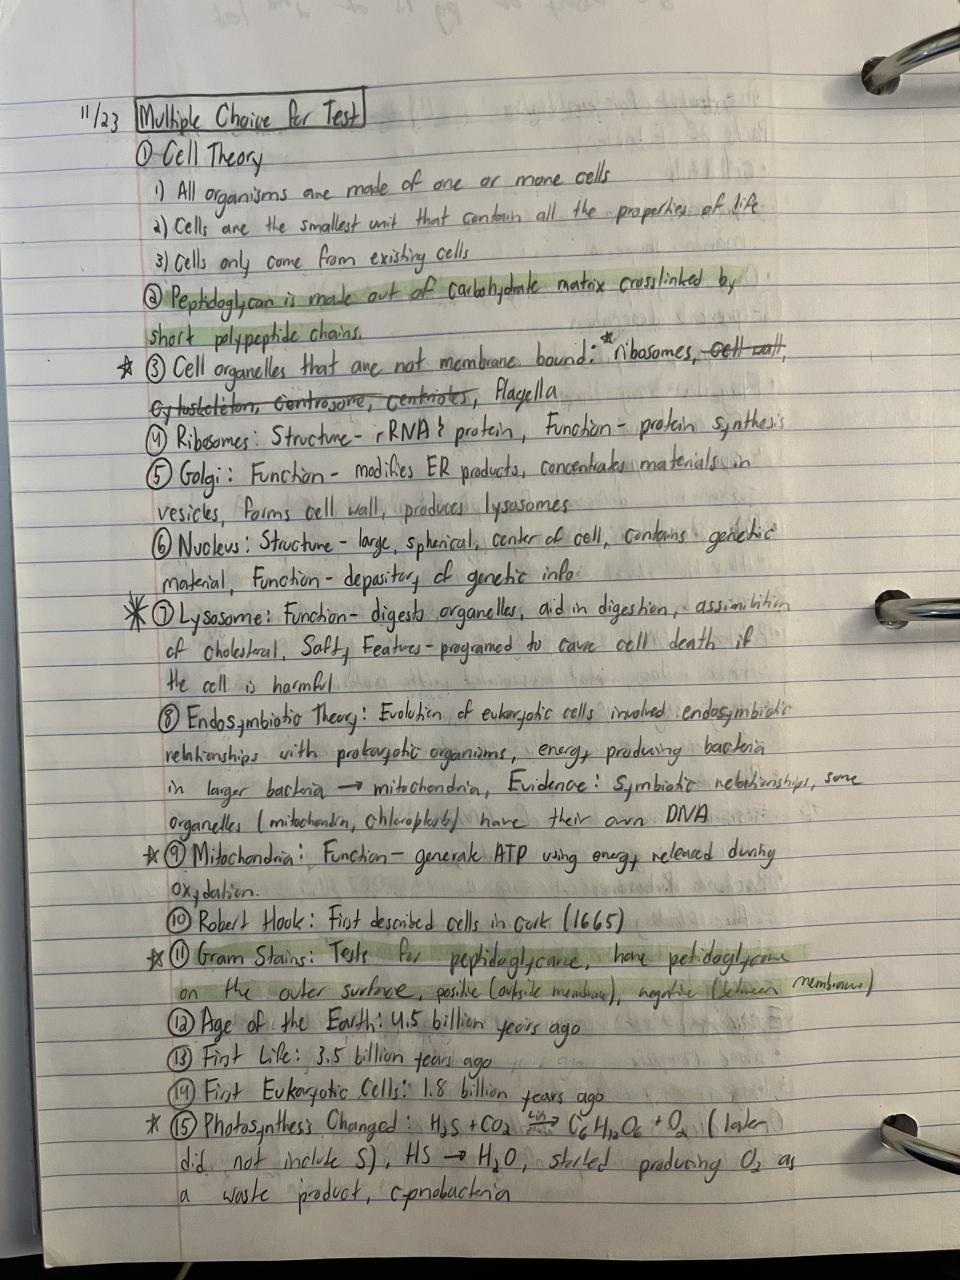 11/23 Multiple Choice for Test
① Cell Theory
1) All organisms are made of one or more cells
2) Cells are the smallest unit that contain all the properties of life
3) Cells only come from existing cells
② Peptidoglycan is made out of carbohydrate matrix crosslinked by
short polypeptide chains.
☆ ③ Cell organelles that are not membrane bound: *ribosomes, cell wall,
cytoskeleton, centrosome, centrioles, flagella
④ Ribosomes: Structure - rRNA & protein, Function - protein synthesis
⑤ Golgi: Function - modifies ER products, concentrates materials in
vesicles, forms cell wall, produces lysosomes
⑥ Nucleus: Structure - large, spherical, center of cell, contains genetic
material, Function - depository of genetic info
* ⑦ Lysosome: Function - digests organelles, aid in digestion, assimilition
of cholesteral, Safty Features - programed to cause cell death if
the cell is harmful
⑧ Endosymbiotic Theory: Evolution of eukaryotic cells involved endosymbiotic
relationships with prokaryotic organisms, energy producing bacteria
in larger bacteria → mitochondria, Evidence: Symbiotic relationships, some
organelles (mitochondria, chloroplasts) have their own DNA
☆ ⑨ Mitochondria: Function - generate ATP using energy released during
oxydation.
⑩ Robert Hook: First described cells in cork (1665)
☆ ⑪ Gram Stains: Tests for peptidoglycane, have petidoglycane
on the outer surface, positive (outside membrane), negative (between membranes)
⑫ Age of the Earth: 4.5 billion years ago
⑬ First Life: 3.5 billion years ago
⑭ First Eukaryotic Cells: 1.8 billion years ago
* ⑮ Photosynthesis Changed: H₂S + CO₂ → C₆H₁₂O₆ + O₂ (later
did not include S), HS → H₂O, started producing O₂ as
a waste product, cynobacteria